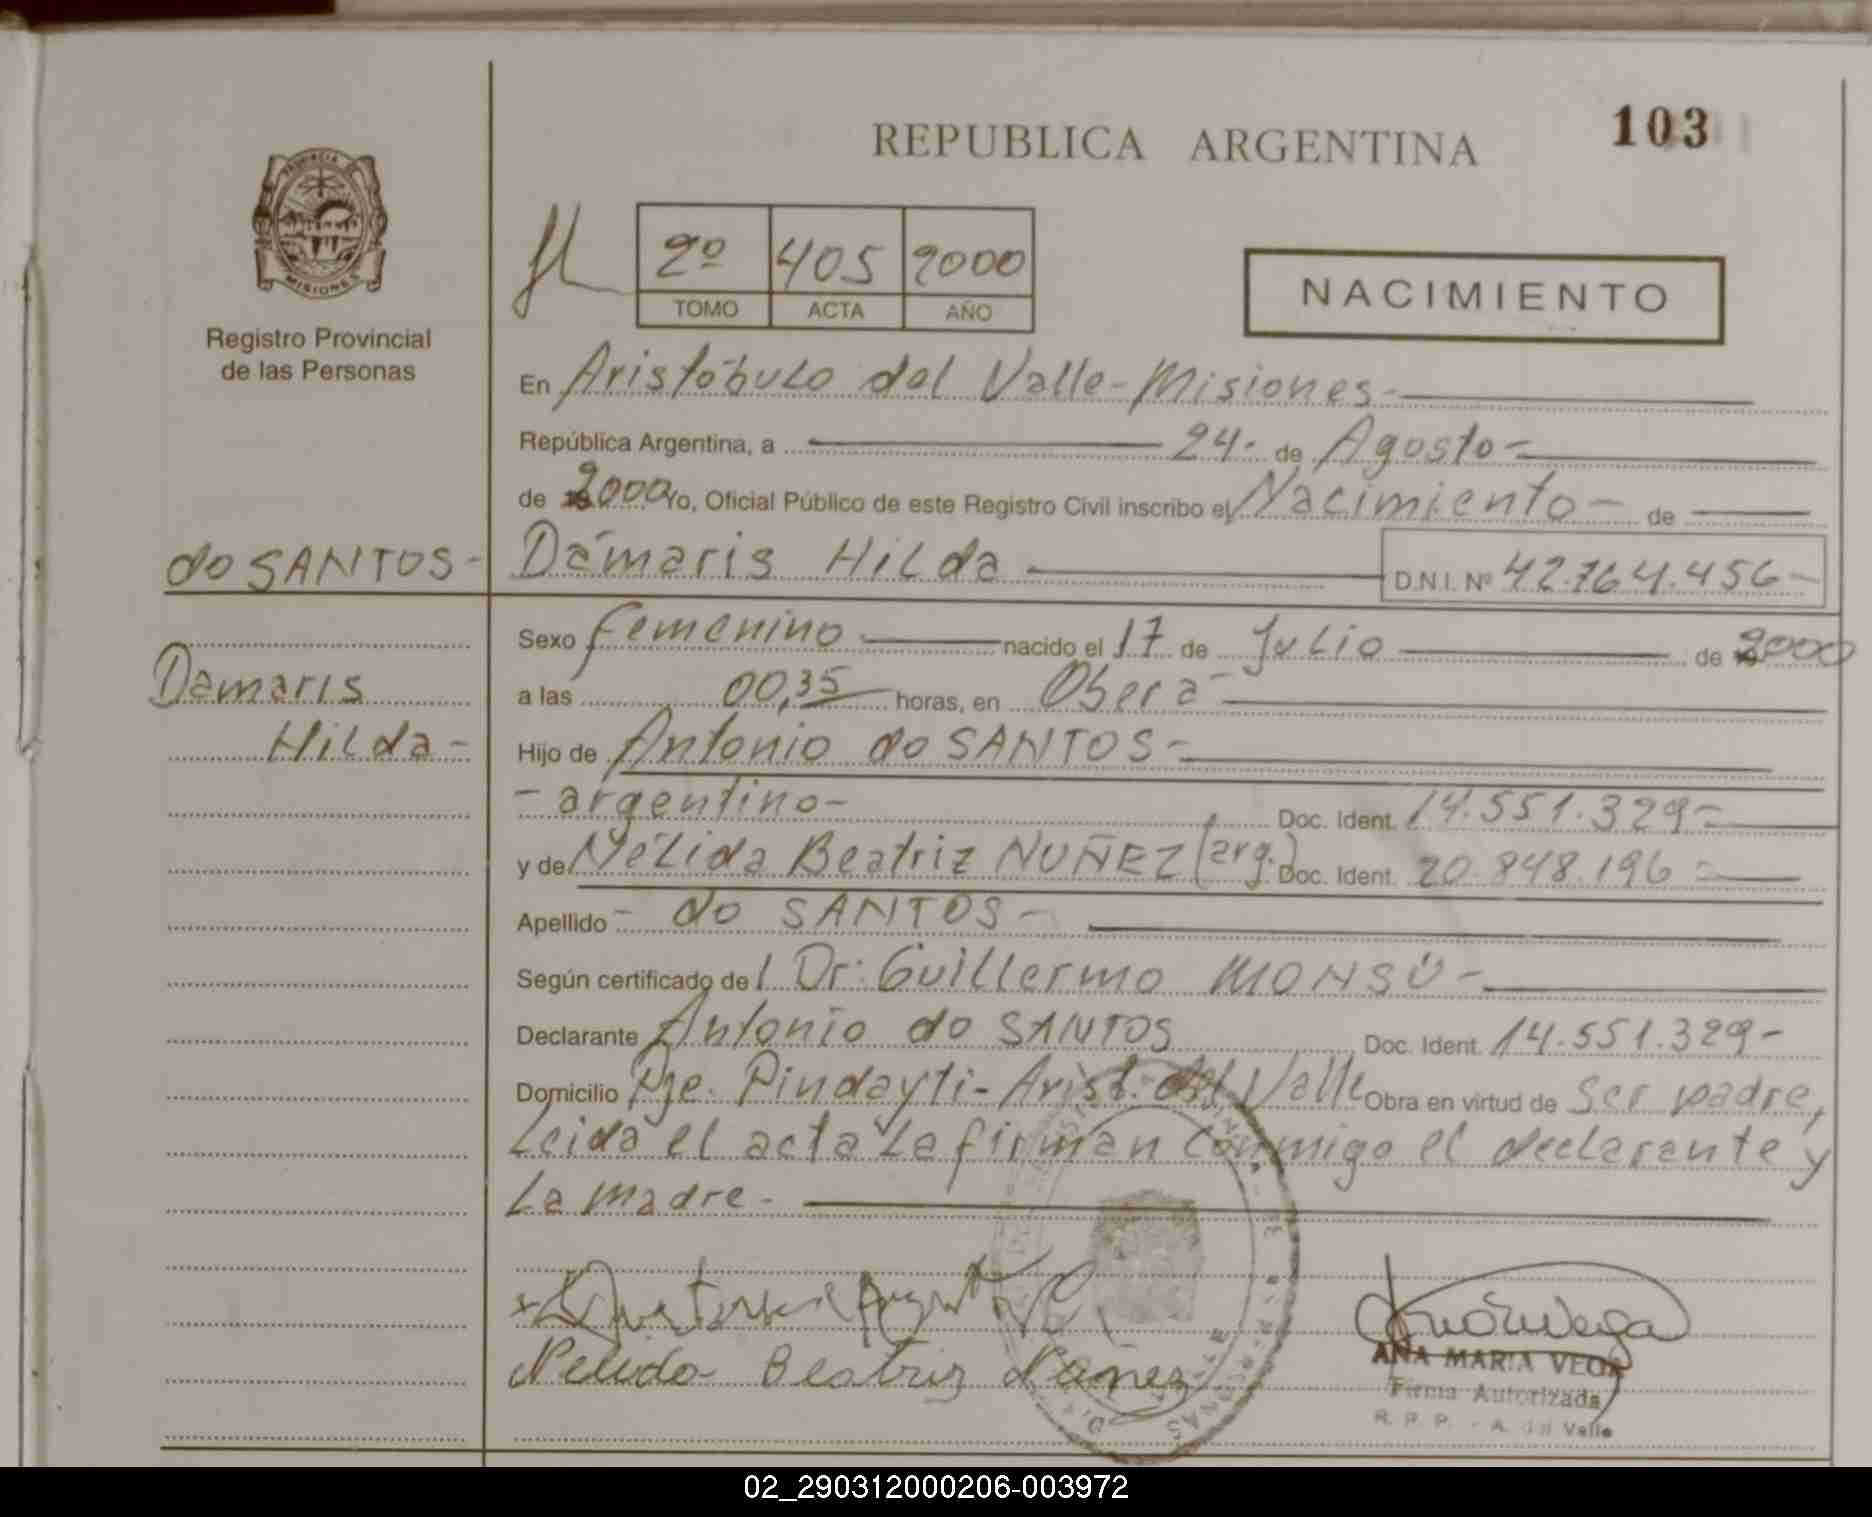 103
REPUBLICA ARGENTINA
PROVINCIA
MISIONES
Registro Provincial
de las Personas
2º 405 2000
TOMO ACTA AÑO
NACIMIENTO
En Aristóbulo del Valle-Misiones-
República Argentina, a 24- de Agosto-
de 2000 Yo, Oficial Público de este Registro Civil inscribo el Nacimiento- de
do SANTOS- Dámaris Hilda D.N.I. Nº 42.764.456-
Sexo femenino nacido el 17 de Julio de 2000
Damaris
a las 00,35 horas, en Oberá-
Hilda-
Hijo de Antonio do SANTOS-
-argentino- Doc. Ident. 14.551.329-
y de Nélida Beatriz NUÑEZ (arg.) Doc. Ident. 20.848.196-
Apellido - do SANTOS-
Según certificado del Dr: Guillermo MONSÚ-
Declarante Antonio do SANTOS Doc. Ident. 14.551.329-
Domicilio Pje. Pindayti-Arist. del Valle Obra en virtud de ser padre,
Leida el acta la firman conmigo el declarante y
la madre-
Nelida Beatriz Nuñez
ANA MARIA VEGA
Firma Autorizada
R. P. P. - A. del Valle
02_290312000206-003972